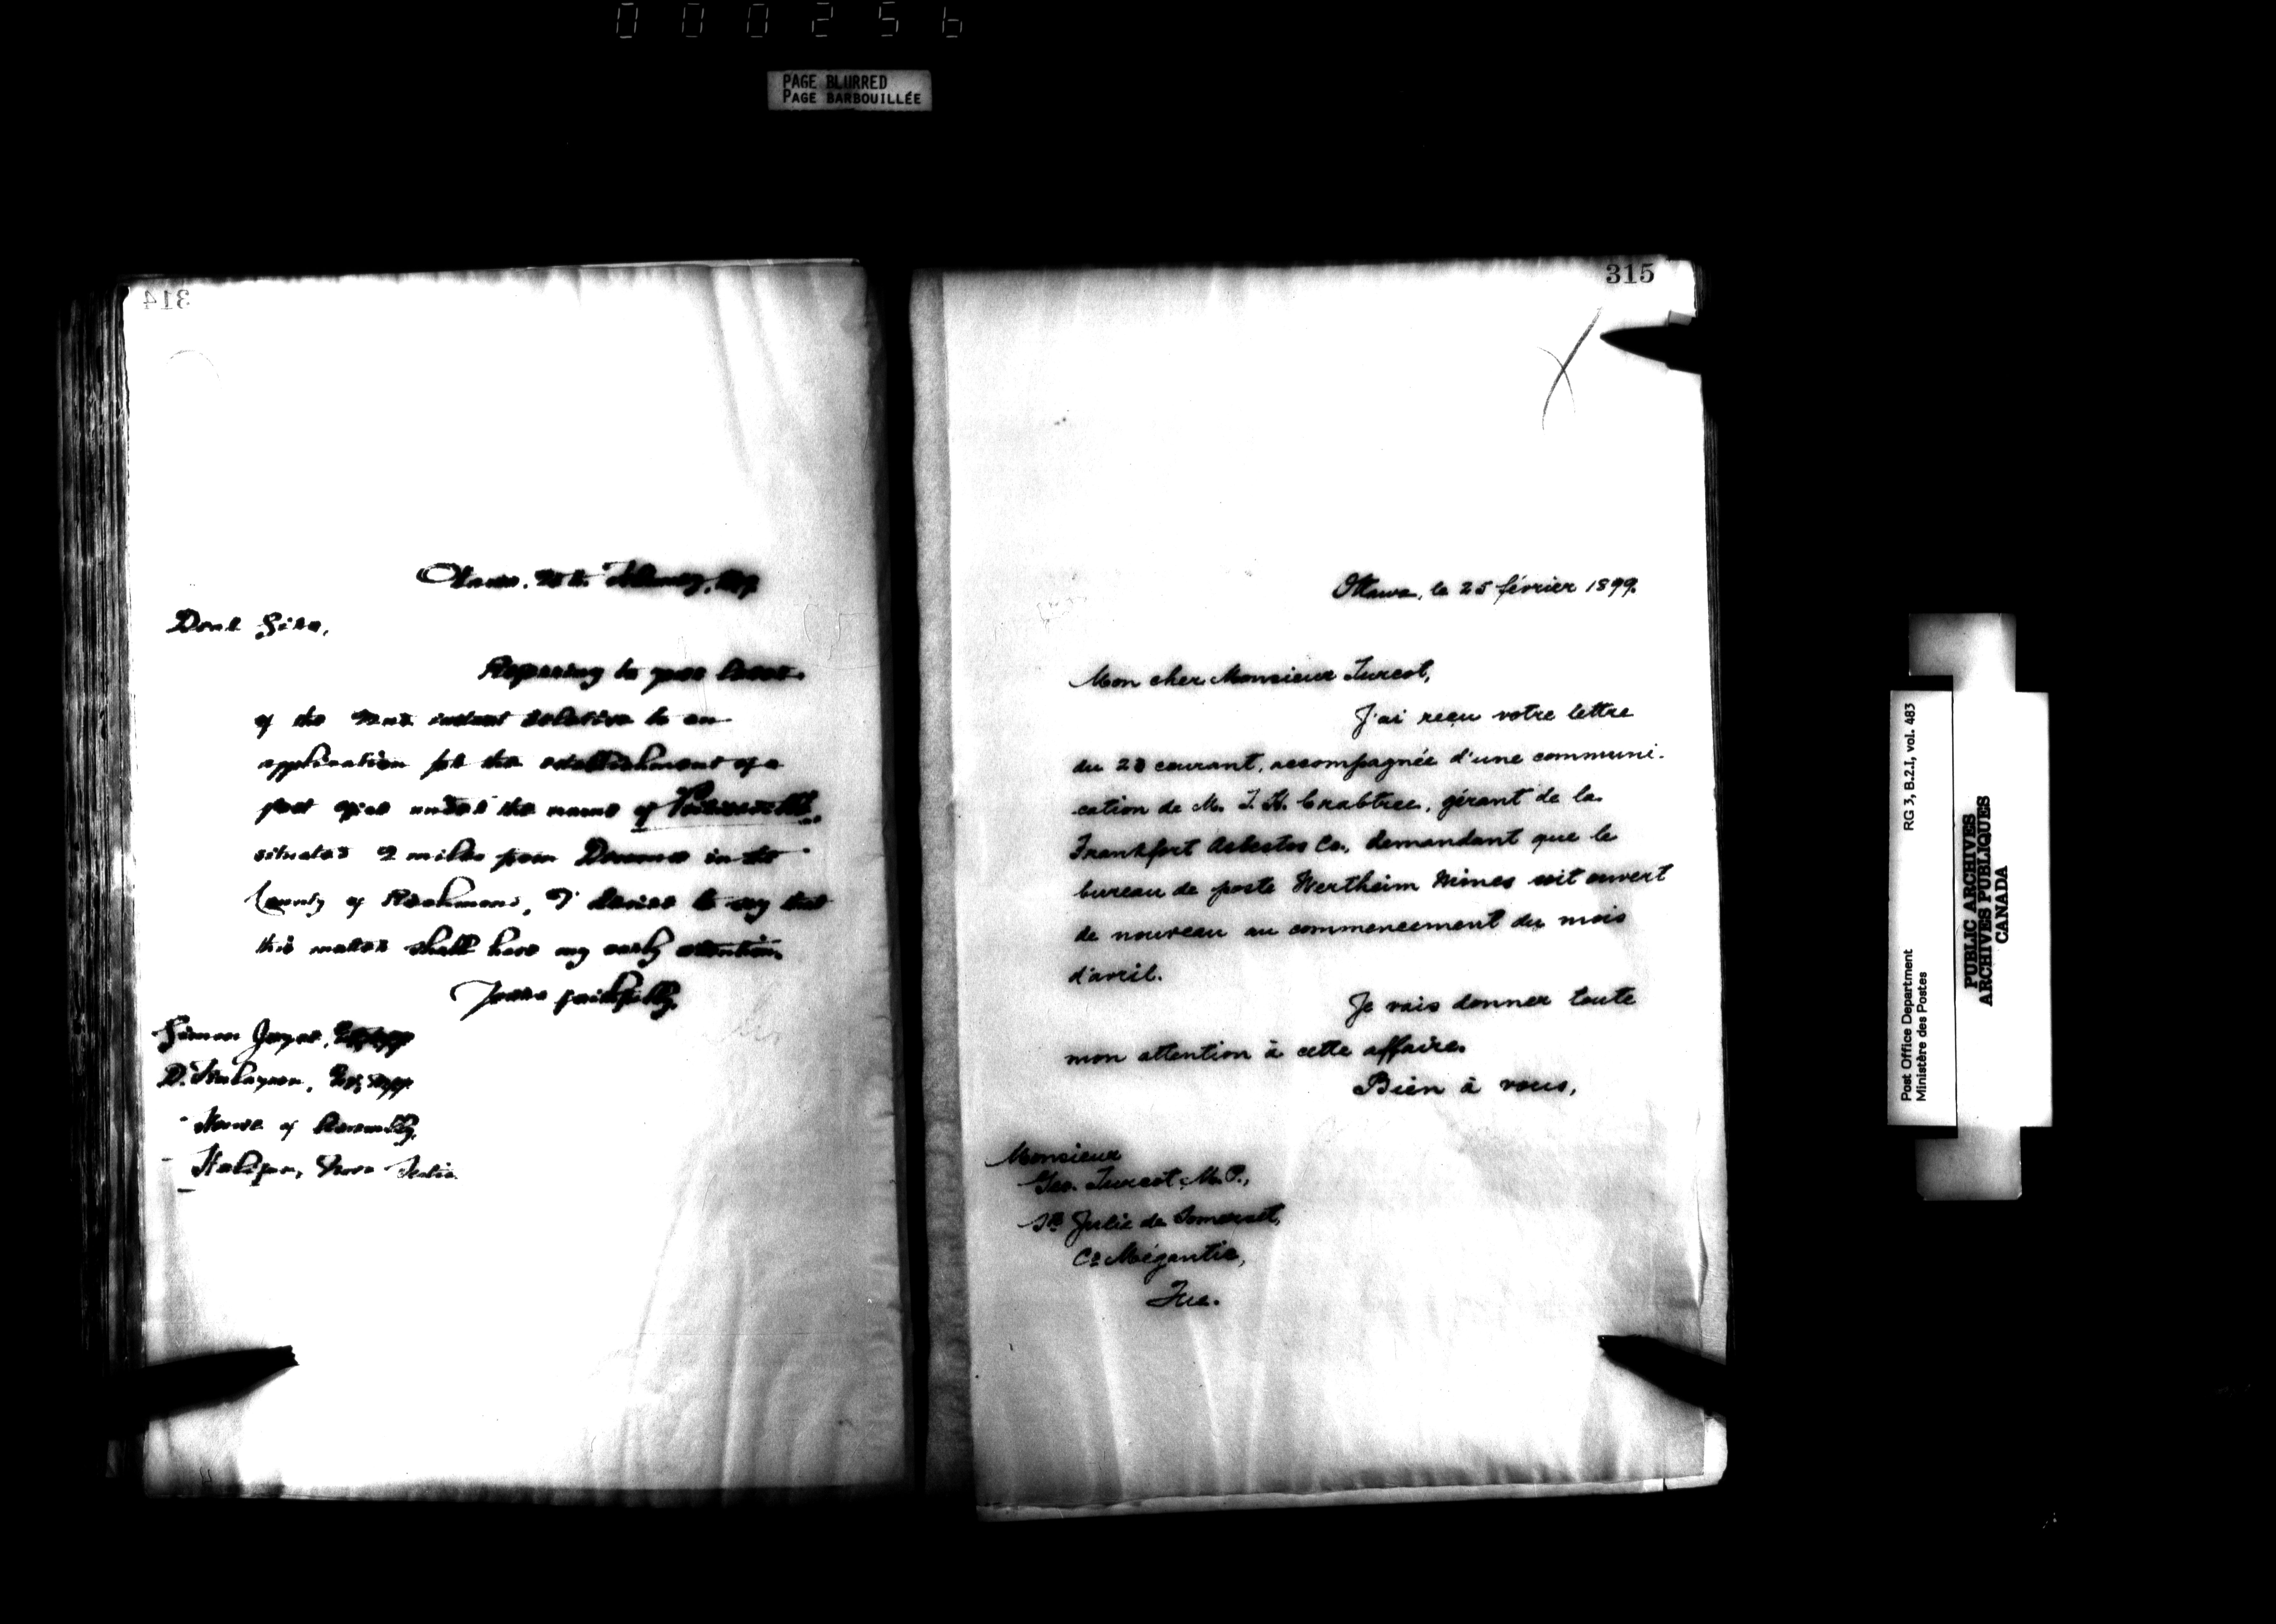 000256
PAGE BLURRED
PAGE BARBOUILLÉE
314
Dear Sirs,
Referring to your letter
of the instant relative to an
application for the establishment of a
post office under the name of
situated 2 miles from in the
County of Richmond, I desire to say that
this matter shall have my early attention.
Yours faithfully,
Simon Joyce,
D. Finlayson,
House of Assembly,
Halifax, Nova Scotia
315
Ottawa, le 25 février 1899.
Mon cher Monsieur Turcot,
J'ai reçu votre lettre
du 23 courant, accompagnée d'une communi-
cation de M. J. H. Crabtree, gérant de la
Frankfort Asbestos Co., demandant que le
bureau de poste Wertheim Mines soit ouvert
de nouveau au commencement du mois
d'avril.
Je vais donner toute
mon attention à cette affaire.
Bien à vous,
Monsieur
Geo. Turcot, M.P.,
Ste Julie de Somerset,
Co Mégantic,
Que.
Post Office Department
Ministère des Postes
RG 3, B.2.I, vol. 483
PUBLIC ARCHIVES
ARCHIVES PUBLIQUES
CANADA